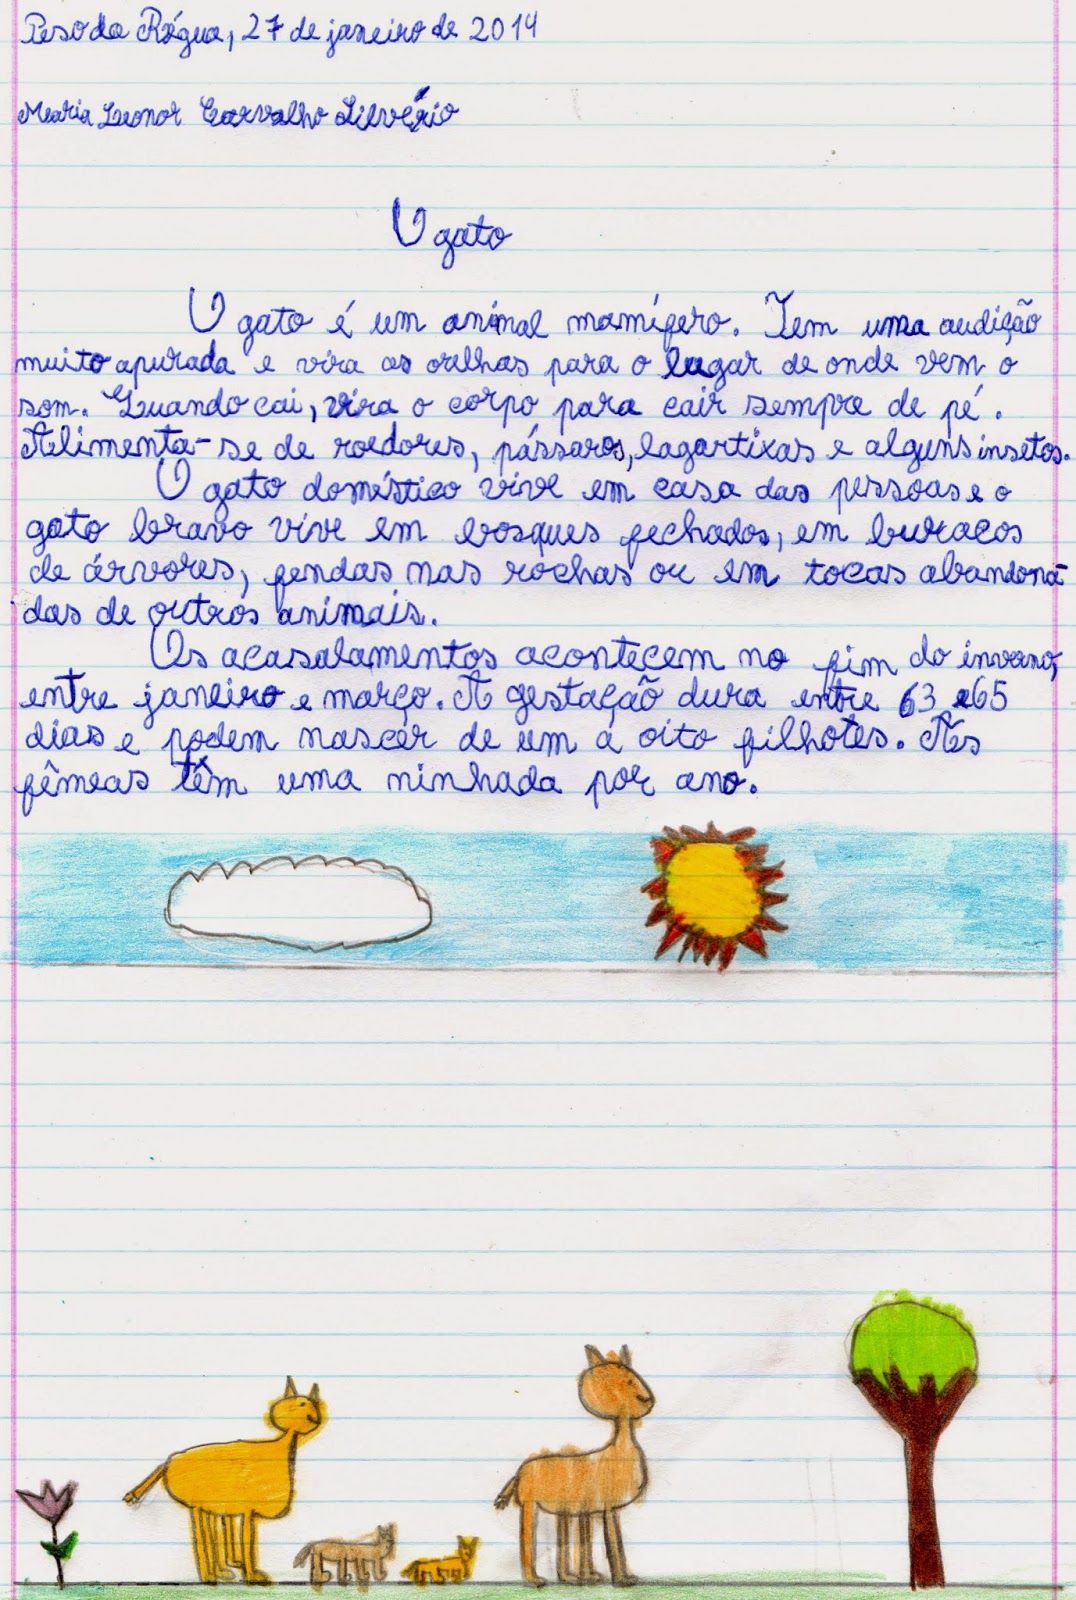 Peso da Régua, 27 de janeiro de 2014
Maria Leonor Carvalho Silvério
O gato
O gato é um animal mamífero. Tem uma audição
muito apurada e vira as orelhas para o lugar de onde vem o
som. Quando cai, vira o corpo para cair sempre de pé.
Alimenta-se de roedores, pássaros, lagartixas e alguns insetos.
O gato doméstico vive em casa das pessoas e o
gato bravo vive em bosques fechados, em buracos
de árvores, fendas nas rochas ou em tocas abandona-
das de outros animais.
Os acasalamentos acontecem no fim do inverno,
entre janeiro e março. A gestação dura entre 63 e 65
dias e podem nascer de um a oito filhotes. As
fêmeas têm uma ninhada por ano.